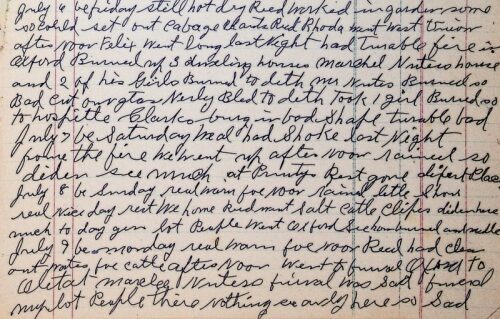 July 6 be friday still hot dry Reed worked in garden some
so could set out Cabage Charles Reed Rhoda went West Union
after Noor Felix went long last Night had turable fire in
Oxford Burned up 3 dweling houses Marshel Nutess house
and 2 of his Girls Burned to deth Mr Nutes Burned so
Bad Cut on glas Nerly Bled to deth Took 1 girl Burned so
to hospitle Clarks burg in bad Shape turable bad
July 7 be Saturday Meal had Shoke last Night
frome the fire We went up after Noor rained so
diden see much at Pruntys Rest gone difert Place
July 8 be Sunday real warm foe Noor rained litle Shour
real Nice day rest We home Reed must Salt Catle diden have
much to day gun lot People Went Oxford See hou burned and
July 9 be monday real warm foe noor Reed had clean
out foe catle after Noor Went to funral Oxford to
Oletat Nutess funral was Sad funeral
my lot People there nothing early here so Sad